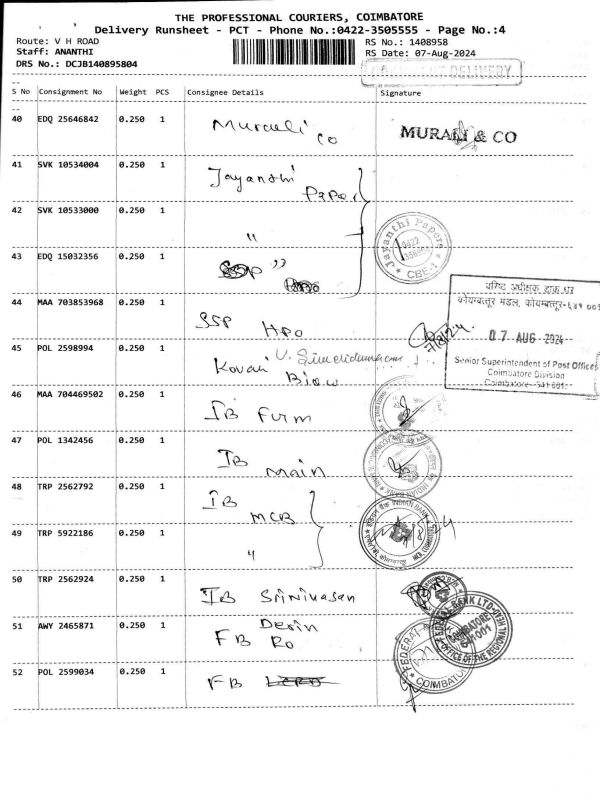 THE PROFESSIONAL COURIERS, COIMBATORE
Delivery Runsheet - PCT - Phone No.:0422-3505555 - Page No.:4
Route: V H ROAD
Staff: ANANTHI
DRS No.: DCJB140895804
RS No.: 1408958
RS Date: 07-Aug-2024
DELIVERY
S No Consignment No Weight PCS Consignee Details Signature
40 EDQ 25646842 0.250 1 Murali co MURALI & CO
41 SVK 10534004 0.250 1 Jayanthi Paper
42 SVK 10533000 0.250 1 "
Jayanthi Papers
0422
CBE-1
43 EDQ 15032356 0.250 1 "
44 MAA 703853968 0.250 1 SSP HPO
7/8/24
वरिष्ठ अधीक्षक डाक घर
कोयम्बत्तूर मंडल, कोयम्बत्तूर-६४१ 001
07 AUG 2024
Senior Superintendent of Post Offices
Coimbatore Division
Coimbatore-641 001
45 POL 2598994 0.250 1 Kovai
46 MAA 704469502 0.250 1 IB Firm
47 POL 1342456 0.250 1 IB main
48 TRP 2562792 0.250 1 IB MCB
INDIAN BANK
49 TRP 5922186 0.250 1 "
50 TRP 2562924 0.250 1 IB Srinivasan
51 AWY 2465871 0.250 1 FB RO
FEDERAL BANK LTD
COIMBATORE
641001
OFFICE OF THE REGIONAL HEAD
52 POL 2599034 0.250 1 FB
FEDERAL
COIMBATORE